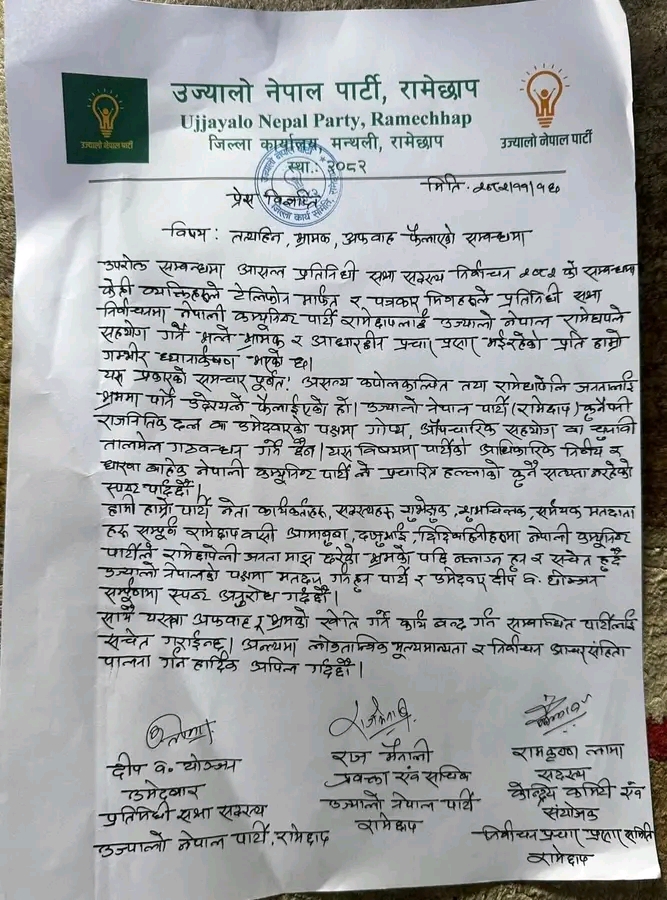 उज्यालो नेपाल पार्टी, रामेछाप
Ujjayalo Nepal Party, Ramechhap
जिल्ला कार्यालय, मन्थली, रामेछाप
स्था.: २०८२
उज्यालो नेपाल पार्टी
उज्यालो नेपाल पार्टी
मिति.
प्रेस विज्ञप्ति
विषय: तथ्यहिन, भ्रामक, अफवाह फैलाएको सम्बन्धमा
उपरोक्त सम्बन्धमा आसन्न प्रतिनिधी सभा सदस्य निर्वाचन २०८२ को सम्बन्धमा
केही व्यक्तिहरूले टेलिफोन मार्फत र पत्रकार मित्रहरूले प्रतिनिधी सभा
निर्वाचनमा नेपाली कम्युनिष्ट पार्टी रामेछापलाई उज्यालो नेपाल रामेछापले
सहयोग गर्ने भन्ने भ्रामक र आधारहीन प्रचार प्रसार भईरहेको प्रति हाम्रो
गम्भीर ध्यानाकर्षण भएको छ।
यस प्रकारको समाचार पूर्णत: असत्य कपोलकल्पित तथा रामेछापेली जनतालाई
भ्रममा पार्ने उद्देश्यले फैलाईएको हो। उज्यालो नेपाल पार्टी (रामेछाप) कुनैपनी
राजनितिक दल वा उमेदवारको पक्षमा गोप्य, औपचारिक सहयोग वा चुनावी
तालमेल गठबन्धन गर्ने छैन। यस विषयमा पार्टीको आधिकारिक निर्णय र
धारणा बाहेक नेपाली कम्युनिष्ट पार्टी ले प्रचारित हल्लाको कुनै सत्यता नरहेको
स्पष्ट पार्दछौँ।
हामी हाम्रो पार्टी नेता कार्यकर्ताहरू, सदस्यहरू शुभेच्छुक, शुभचिन्तक, समर्थक मतदाता
हरू सम्पूर्ण रामेछापवासी आमाबुवा, दाजुभाई, दिदिबहिनीहरूमा नेपाली कम्युनिष्ट
पार्टीले रामेछापेली जनता माझ छरेको भ्रमको पछि नलाग्न हुन र सचेत हुदै
उज्यालो नेपालको पक्षमा मतदान गर्नहुन पार्टी र उमेदवार दीप ब. योञ्जन
सम्पूर्णमा स्पष्ट अनुरोध गर्दछौँ।
साथै यस्ता अफवाह र भ्रमको खेति गर्ने कार्य बन्द गर्न सम्बन्धित पार्टीलाई
सचेत गराईन्छ। अन्त्यमा लोकतान्त्रिक मूल्यमान्यता र निर्वाचन आचारसंहिता
पालना गर्न हार्दिक अपिल गर्दछौँ।
दीप ब. योञ्जन
उमेदवार
प्रतिनिधी सभा सदस्य
उज्यालो नेपाल पार्टी, रामेछाप
राज मैनाली
प्रवक्ता एंव सचिव
उज्यालो नेपाल पार्टी
रामेछाप
रामकृष्ण लामा
सदस्य
केन्द्रिय कमिटी एंव
संयोजक
निर्वाचन प्रचार प्रसार समिति
रामेछाप